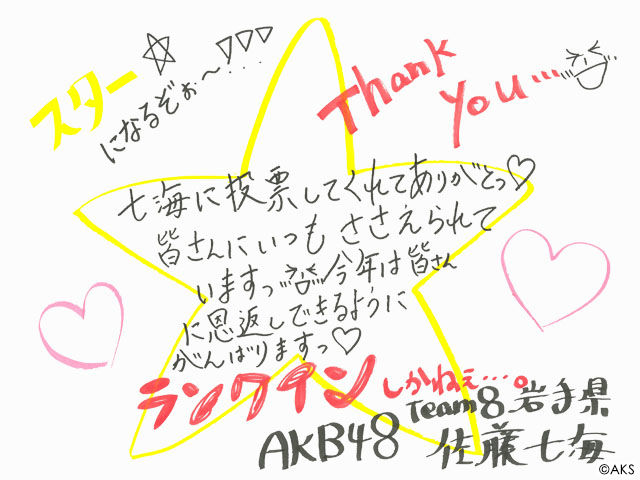 スター☆
になるぞぉ〜!!!
Thank
you…
七海に投票してくれてありがとっ♡
皆さんにいつもささえられて
いますっ今年は皆さん
に恩返しできるように
がんばりますっ♡
ランクイン しかねぇ…。
AKB48 Team8 岩手県
佐藤七海
©AKS